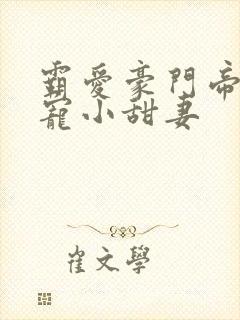 霸愛豪門帝
寵小甜妻
崔文學